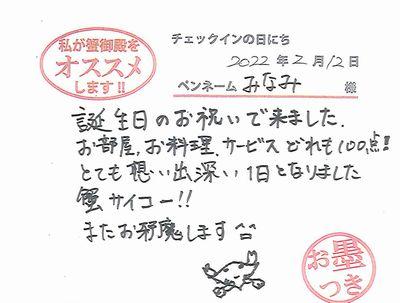 私が蟹御殿を
オススメ
します!!
チェックインの日にち
2022年2月12日
ペンネーム みなみ 様
誕生日のお祝いで来ました.
お部屋、お料理、サービスどれも100点!!
とても想い出深い1日となりました
蟹サイコー!!
またお邪魔します
お墨
つき